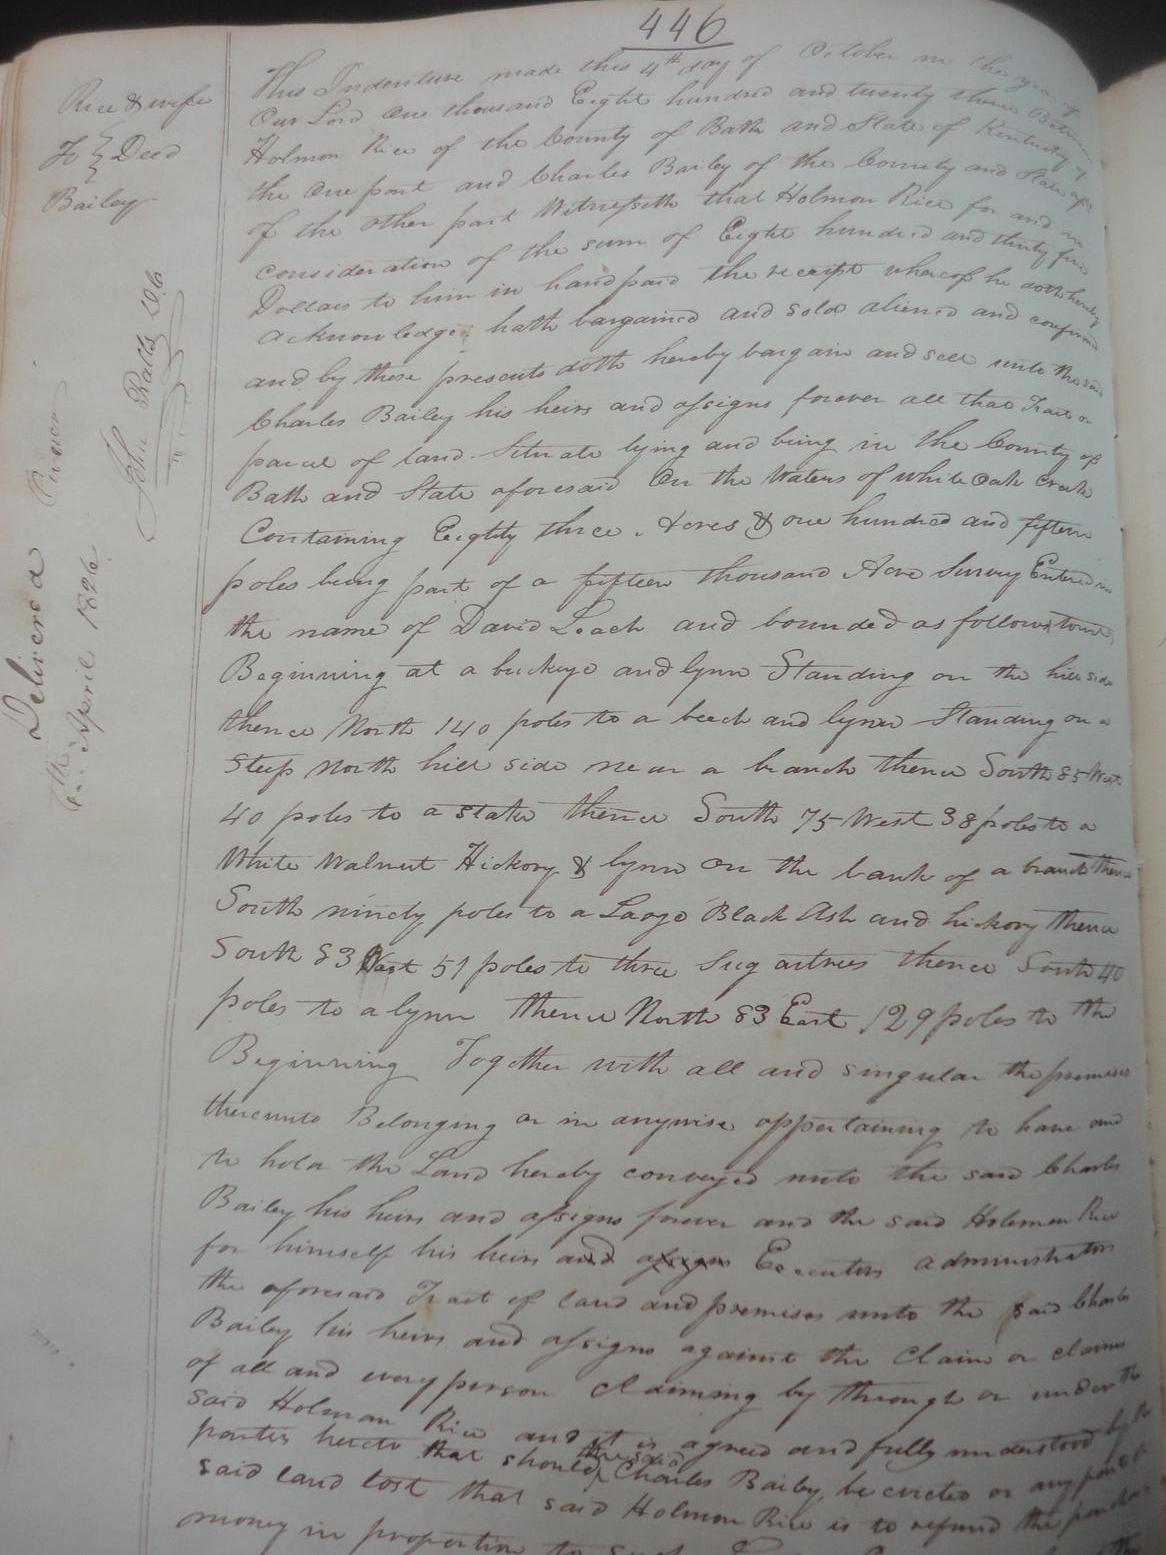 446
Rice & wife
To } Deed
Bailey
Delivered
6th April 1826
John Ratts D.C.
This Indenture made this 4th day of October in the year of
Our Lord One thousand Eight hundred and twenty three Between
Holmon Rice of the County of Bath and State of Kentucky of
the One part and Charles Bailey of the County and State afs
of the other part Witnesseth that Holmon Rice for and in
consideration of the sum of Eight hundred and thirty five
Dollars to him in hand paid the receipt whereof he doth hereby
acknowledge hath bargained and sold aliened and confirmed
and by these presents doth hereby bargain and sell unto the said
Charles Bailey his heirs and assigns forever all that Tract or
parcel of land Situate lying and being in the County of
Bath and State aforesaid On the Waters of white Oak Creek
Containing Eighty three Acres & one hundred and fifteen
poles being part of a fifteen thousand Acre Survey Entered in
the name of David Leach and bounded as follows towit
Beginning at a buckeye and lynn Standing on the hill side
thence North 140 poles to a beech and lynn Standing on a
Steep North hill side near a branch thence South 85 West
40 poles to a stake thence South 75 West 38 poles to a
White Walnut Hickory & lynn On the bank of a branch thence
South ninety poles to a Large Black Ash and hickory thence
South 83 West 51 poles to three Sug artrees thence South 40
poles to a lynn thence North 83 East 129 poles to the
Beginning Together with all and singular the premises
thereunto Belonging or in anywise appertaining to have and
to hold the Land hereby conveyed unto the said Charles
Bailey his heirs and assigns forever and the said Holmon Rice
for himself his heirs and assigns Executors administrators
the aforesaid Tract of land and premises unto the said Charles
Bailey his heirs and assigns against the Claim or claims
of all and every person claiming by through or under the
said Holman Rice and it is agreed and fully understood by the
parties hereto that should the said Charles Bailey be evicted or any part of
said land lost that said Holmon Rice is to refund the purchase
money in proportion to such